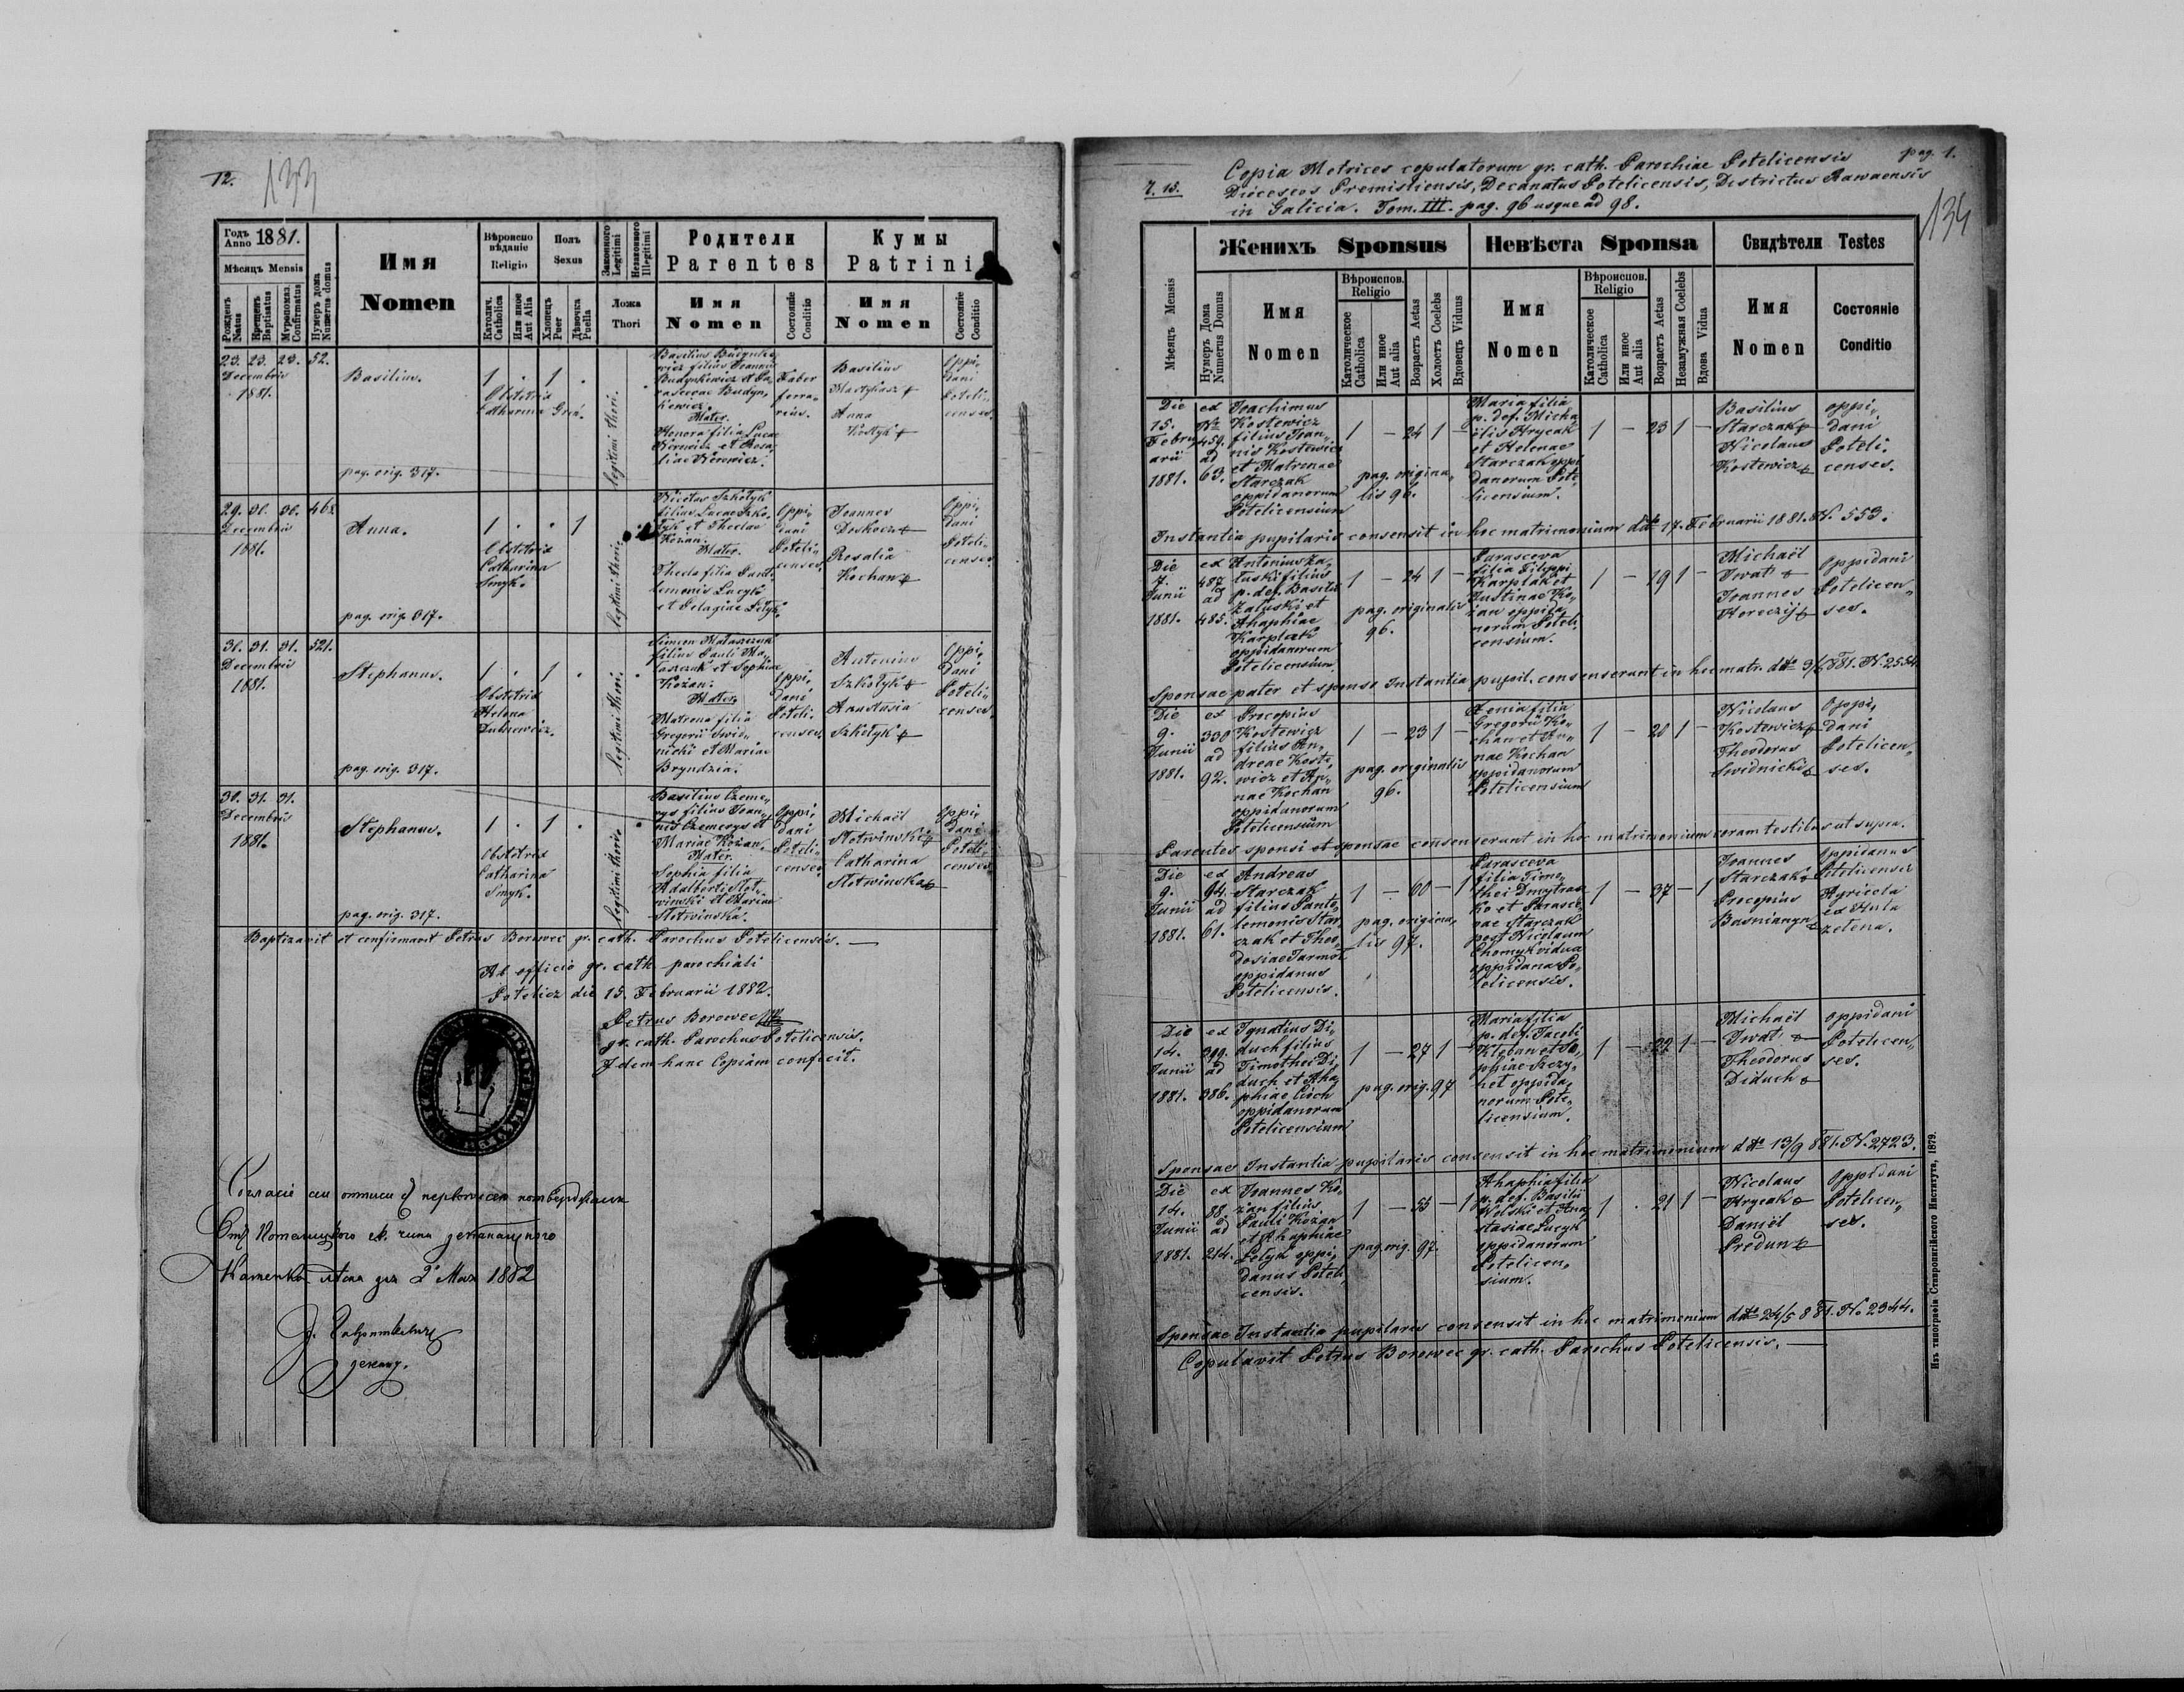 12.
133
Годъ Anno 1881.
Мѣсяцъ Mensis
Рожденъ Natus
Крещенъ Baptisatus
Мѵропомаз. Confirmatus
Нумеръ дома Numerus domus
Имя
Nomen
Вѣроисповѣданіе
Religio
Католич. Catholica
Или иное Aut Alia
Полъ
Sexus
Хлопецъ Puer
Дѣвочка Puella
Законного Legitimi
Незаконного Illegitimi
Ложа
Thori
Родители
Parentes
Имя
Nomen
Состояніе Conditio
Кумы
Patrini
Имя
Nomen
Состояніе Conditio
23. 23. 23. 52.
Decembris
1881.
Basilius.
1 . 1 .
Obstetrix
Catharina Greń.
legitimi thori.
Basilius Budynkie,
wicz filius Joannis
Budynkiewicz et Pa,
rascevae Budyn,
kewicz.
Mater.
Honora filia Lucae
Nerowicz et Rosa,
liae Nerowicz.
Faber
ferra,
rius.
Basilius
Anna
Kostyk +
Oppi,
dani
Poteli,
censes.
pag. orig. 317.
29. 30. 30. 462.
Decembris
1881.
Anna.
1 . . 1
Obstetrix
Catharina
Smyk.
legitimi thori.
Nicetas Szkołyk
filius Lucae Szko,
łyk et Theclae
Kożan.
Mater.
Thecla filia Pant,
lemonis Lucyk
et Pelagiae Petyk.
Oppi,
dani
Poteli,
censes.
Joannes
Doskocz +
Rosalia
Kochan +
Oppi,
dani
Poteli,
censes.
pag. orig. 317.
31. 31. 31. 521.
Decembris
1881.
Stephanus.
1 . 1 .
Obstetrix
Helena
Dubniewicz.
legitimi thori.
Simeon Mataszczuk
filius Pauli Ma,
taszczuk et Sophiae
Kożan.
Mater.
Matrona filia
Gregorii Swid,
nicki et Mariae
Bryndzia.
Oppi,
dani
Poteli,
censes.
Antonius
Szkołyk +
Anastasia
Szkołyk +
Oppi,
dani
Poteli,
censes.
pag. orig. 317.
30. 31. 31.
Decembris
1881.
Stephanus.
1 . 1 .
Obstetrix
Catharina
Smyk.
legitimi thori.
Basilius Czeme,
rys filius Joan,
nis Czemerys et
Mariae Kożan.
Mater.
Sophia filia
Adalberti Słot,
winski et Mariae
Słotwinska.
Oppi,
dani
Poteli,
censes.
Michaël
Słotwinski +
Catharina
Słotwinska +
Oppi,
dani
Poteli,
censes.
pag. orig. 317.
Baptizavit et confirmavit Petrus Borowec gr. cath. Parochus Potelicensis. —
Ab officio gr. cath. parochiali
Potelicz die 15. Februarii 1882.
Petrus Borowec
gr. cath. Parochus Potelicensis.
Idem hanc Copiam confecit.
Согласіе сеи отписи съ первописею потверджаеся
Отъ Потелицкого гр. чина деканального
Каменка лѣсна дня 2° Мая 1882
деканъ.
pag. 1.
134
7. 15.
Copia Metrices copulatorum gr. cath. Parochiae Potelicensis
Dioceseos Premisliensis, Decanatus Potelicensis, Districtus Rawaensis
in Galicia. Tom. III. pag. 96 usque ad 98.
Мѣсяцъ Mensis
Женихъ Sponsus
Нумеръ Дома Numerus Domus
Имя
Nomen
Вѣроиспов.
Religio
Католическое Catholica
Или иное Aut alia
Возрастъ Aetas
Холостъ Coelebs
Вдовецъ Viduus
Невѣста Sponsa
Имя
Nomen
Вѣроиспов.
Religio
Католическое Catholica
Или иное Aut alia
Возрастъ Aetas
Незамужная Coelebs
Вдова Vidua
Свидѣтели Testes
Имя
Nomen
Состояніе
Conditio
Die
15.
Febru
arii
1881.
ex
Nr.
459.
ad
63.
Joachimus
Kostewicz
filius Joan,
nis Kostewicz
et Matronae
Starczak
oppidanorum
Potelicensium
1 — 24 1 —
pag. origina,
lis 96.
Maria filia
p. def. Micha
ëlis Hrycak
et Helenae
Starczak oppi
danorum Pote
licensium.
1 — 23 1 —
Basilius
Starczak +
Nicolaus
Kostewicz +
oppi,
dani
Poteli,
censes.
Instantia pupilaris consensit in hoc matrimonium ddto 17. Februarii 1881. N. 553.
Die
7.
Junii
1881.
ex
487
ad
485.
Antonius Za,
łuski filius
p. def. Basilii
Załuski et
Ahaphiae
Karplak
oppidanorum
Potelicensium.
1 — 24 1 —
pag. originalis
96.
Parasceva
filia Filippi
Karplak et
Justinae Ko,
żan oppida,
norum Poteli,
censium.
1 — 19 1 —
Michaël
Iwat +
Joannes
Horeczij +
Oppidani
Potelicen,
ses.
Sponsae pater et sponso Instantia pupil. consenserunt in hoc matr. ddto 3/6 881. N. 2554
Die
9.
Junii
1881.
ex
330
ad
92.
Procopius
Kostewicz
filius An,
dreae Koste,
wicz et An,
nae Kochan
oppidanorum
Potelicensium
1 — 23 1 —
pag. originalis
96.
Xenia filia
Gregorii Ko,
chan et An,
nae Kochan
oppidanorum
Potelicensium
1 — 20 1 —
Nicolaus
Kostewicz +
Theodorus
Swidnicki +
Oppi,
dani
Potelicen,
ses.
Parentes sponsi et sponsae consenserunt in hoc matrimonium coram testibus ut supra.
Die
9.
Junii
1881.
ex
94.
ad
61.
Andreas
Starczak
filius Pante,
lemonis Star
czak et Theo,
dosiae Jarmol
oppidanus
Potelicensis.
1 — 60 — 1
pag. origina,
lis 97.
Parasceva
filia Timo,
thei Dmytrasz
ko et Parasce,
vae Starczak
post Nicolaum
Chomyk vidua
oppidana Po,
telicensis.
1 — 37 — 1
Joannes
Starczak +
Procopius
Basnianyn +
Oppidanus
Potelicensis
Agricola
ex Huta
zelena.
Die
14.
Junii
1881.
ex
299.
ad
386.
Ignatius Di,
duch filius
Timothei Di,
duch et Aha,
phiae Cioch
oppidanorum
Potelicensium
1 — 27 1 —
pag. orig. 97
Maria filia
p. def. Jacobi
Kleban et So,
phiae Szczy,
het oppida,
norum Pote,
licensium.
1 — 22 1 —
Michaël
Iwat +
Theodorus
Diduch +
oppidani
Potelicen,
ses.
Sponsae Instantia pupilaris consensit in hoc matrimonium ddto 13/9 881. N. 2723.
Die
14.
Junii
1881.
ex
88.
ad
214.
Joannes Ko,
żan filius
Pauli Kożan
et Ahaphiae
Petyk oppi,
danus Poteli,
censis.
1 — 55 — 1
pag. orig. 97.
Ahaphia filia
p. def. Basilii
Wolski et Ana,
stasiae Lucyk
oppidanorum
Potelicen,
sium.
1 . 21 1 —
Nicolaus
Hrycak +
Daniël
Predun +
Oppidani
Potelicen,
ses.
Sponsae Instantia pupilaris consensit in hoc matrimonium ddto 24/5 881. N. 2344.
Copulavit Petrus Borowec gr. cath. Parochus Potelicensis. —
Изъ типографіи Ставропигійского Института, 1879.